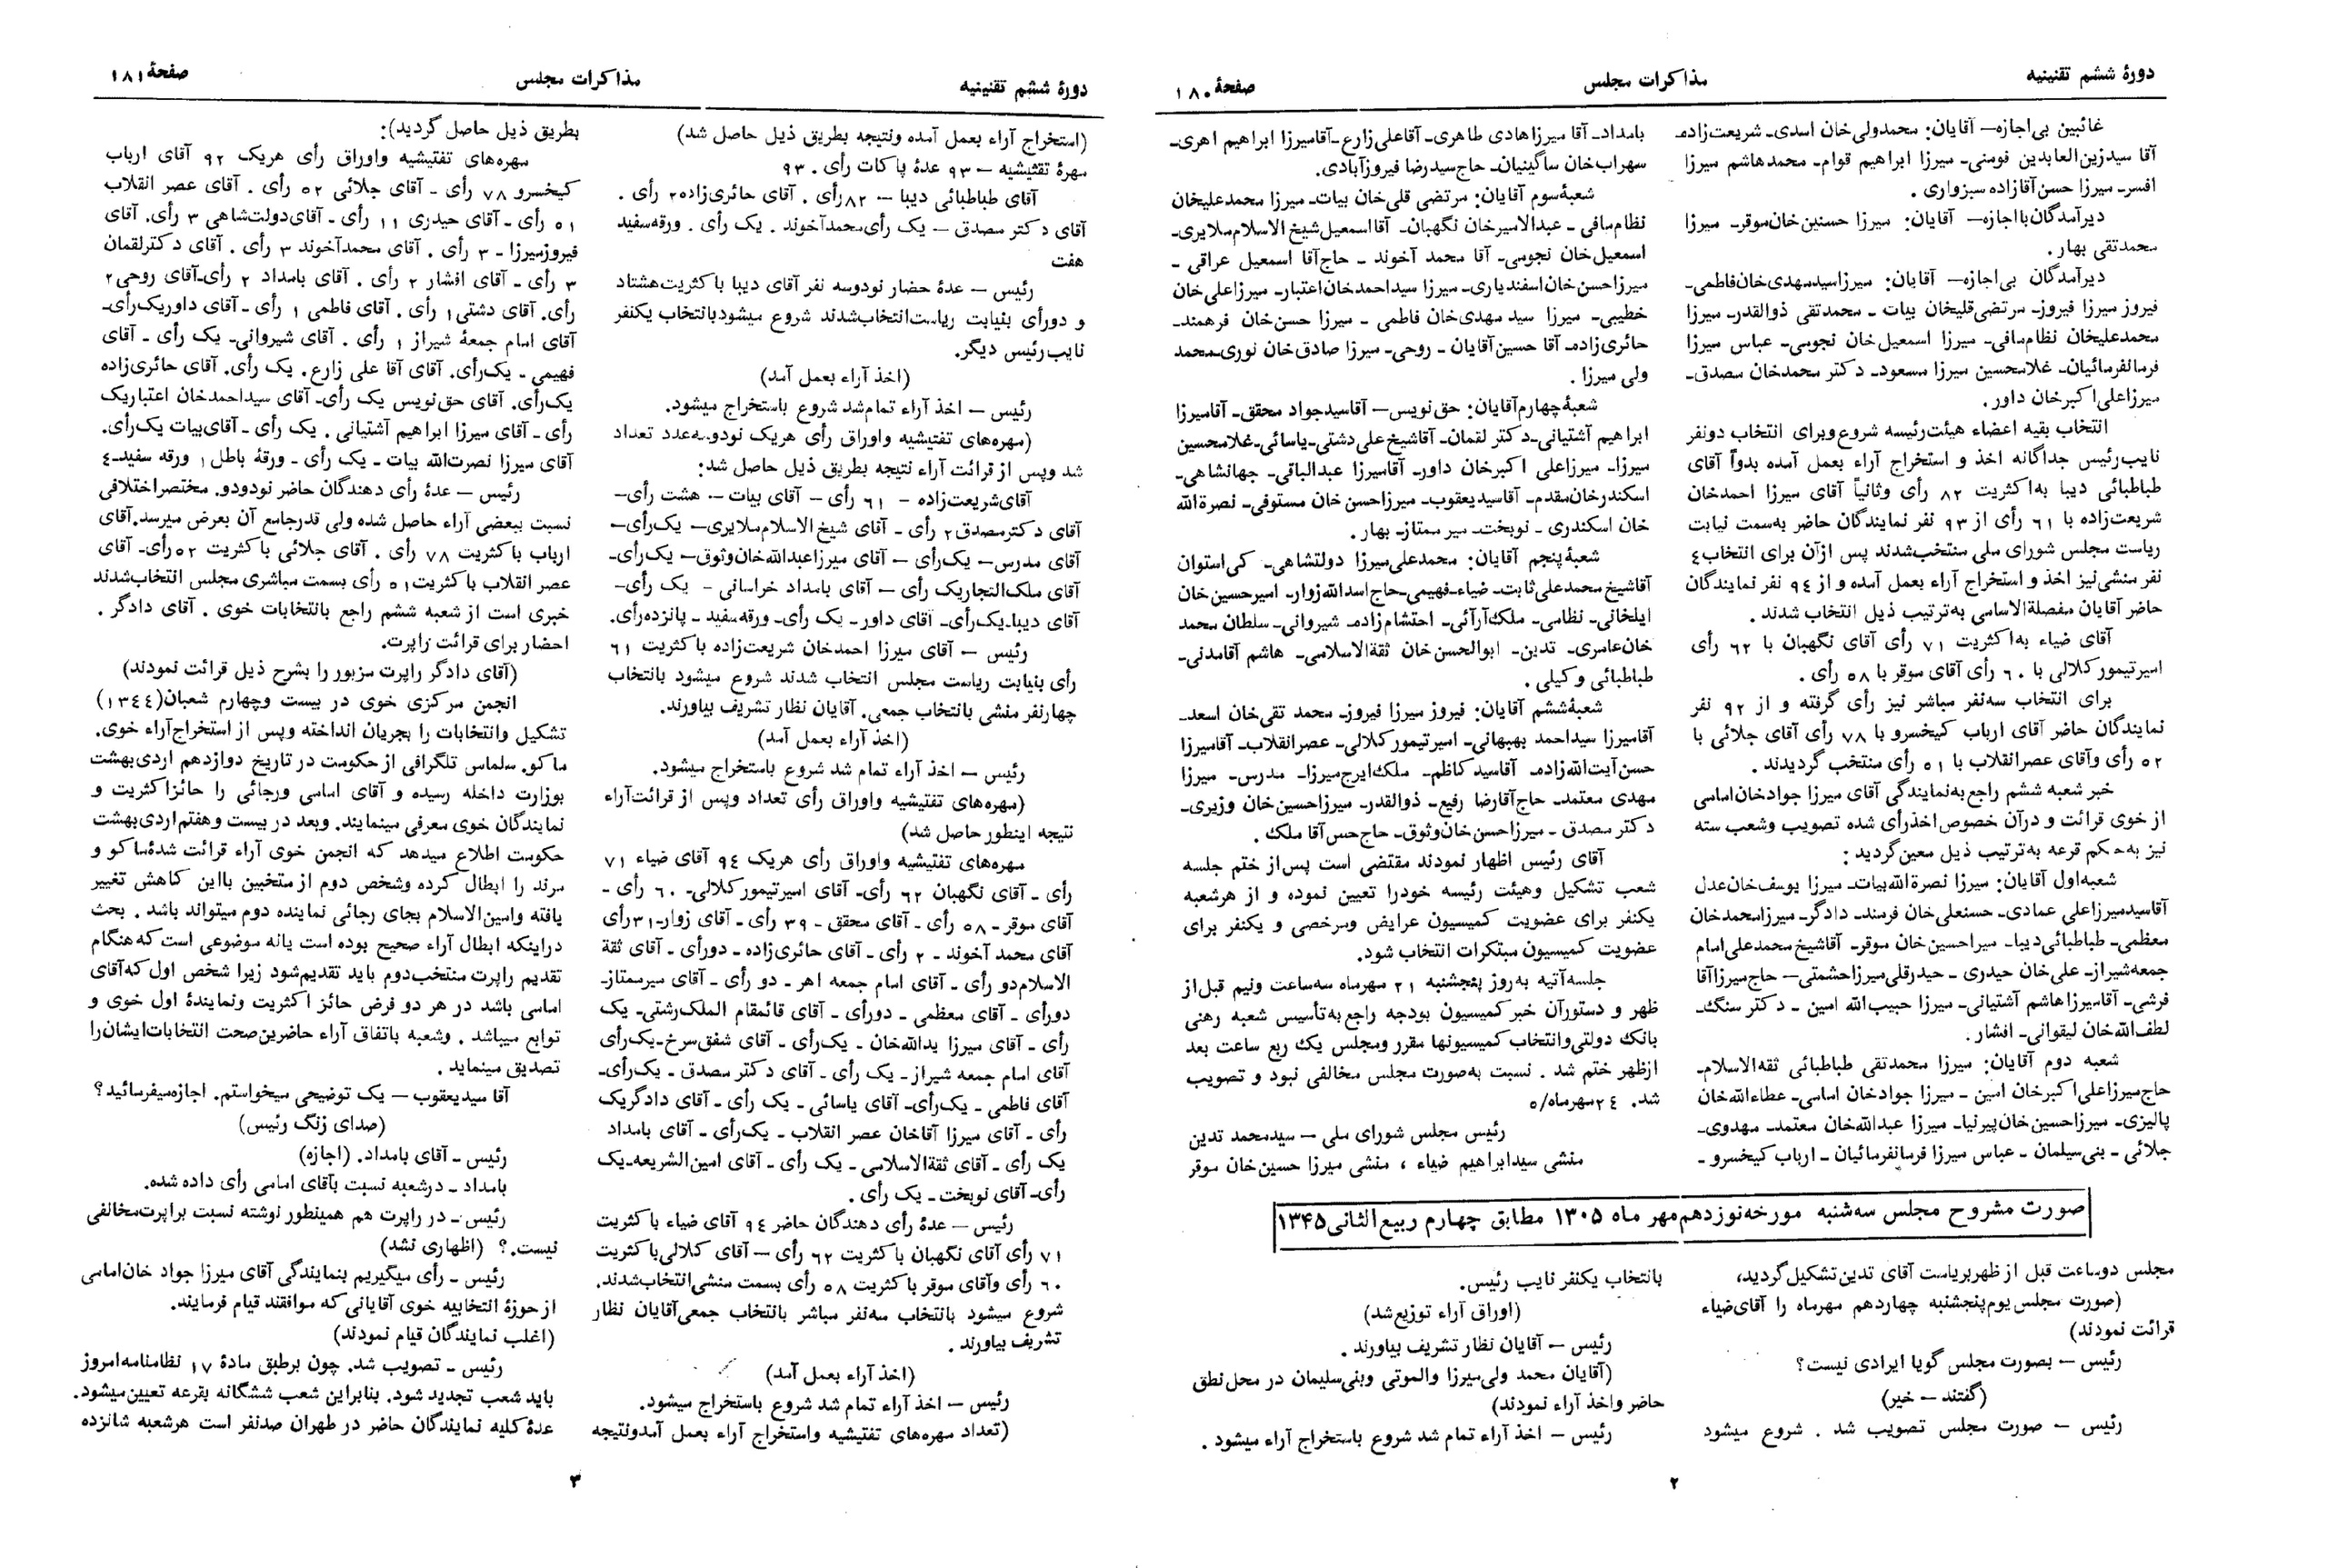 دورهٔ ششم تقنینیه
مذاکرات مجلس
صفحهٔ ۱۸۰
غائبین بی‌اجازه— آقایان: محمدولی‌خان اسدی— شریعت‌زاده—
آقا سیدزین‌العابدین فومنی— میرزا ابراهیم قوام— محمدهاشم میرزا
افسر— میرزا حسن‌آقازاده سبزواری .
دیرآمدگان‌بااجازه— آقایان: میرزا حسنین‌خان‌موقر— میرزا
محمدتقی بهار.
دیرآمدگان بی‌اجازه— آقایان: میرزاسیدمهدی‌خان‌فاطمی—
فیروز میرزا فیروز— مرتضی‌قلیخان بیات — محمدتقی ذوالقدر— میرزا
محمدعلیخان نظام‌مافی— میرزا اسمعیل‌خان نجومی— عباس میرزا
فرمانفرمائیان— غلامحسین میرزا مسعود— دکتر محمدخان مصدق—
میرزاعلی‌اکبرخان داور.
انتخاب بقیه اعضاء هیئت‌رئیسه شروع‌وبرای انتخاب دونفر
نایب‌رئیس جداگانه اخذ و استخراج آراء بعمل آمده بدواً آقای
طباطبائی دیبا به‌اکثریت ۸۲ رأی وثانیاً آقای میرزا احمدخان
شریعت‌زاده با ۶۱ رأی از ۹۳ نفر نمایندگان حاضر به‌سمت نیابت
ریاست مجلس شورای ملی منتخب‌شدند پس ازآن برای انتخاب۴
نفر منشی‌نیز اخذ و استخراج آراء بعمل آمده و از ۹۴ نفر نمایندگان
حاضر آقایان مفصلة‌الاسامی به‌ترتیب ذیل انتخاب شدند .
آقای ضیاء به‌اکثریت ۷۱ رأی آقای نگهبان با ۶۲ رأی
امیرتیمورکلالی با ۶۰ رأی آقای موقر با ۵۸ رأی .
برای انتخاب سه‌نفر مباشر نیز رأی گرفته و از ۹۲ نفر
نمایندگان حاضر آقای ارباب کیخسرو با ۷۸ رأی آقای جلائی با
۵۲ رأی وآقای عصرانقلاب با ۵۱ رأی منتخب گردیدند .
خبر شعبه ششم راجع‌به‌نمایندگی آقای میرزا جوادخان‌امامی
از خوی قرائت و درآن خصوص اخذرأی شده تصویب وشعب سته
نیز به‌حکم قرعه به‌ترتیب ذیل معین‌گردید :
شعبه‌اول آقایان: میرزا نصرة‌الله‌بیات— میرزا یوسف‌خان‌عدل
آقاسیدمیرزاعلی عمادی— حسنعلی‌خان فرمند— دادگر— میرزامحمدخان
معظمی— طباطبائی‌دیبا— میراحسین‌خان موقر— آقاشیخ‌محمدعلی‌امام
جمعه‌شیراز— علی‌خان حیدری — حیدرقلی‌میرزاحشمتی— حاج‌میرزاآقا
فرشی— آقامیرزاهاشم آشتیانی— میرزا حبیب‌الله امین — دکتر سنگ—
لطف‌الله‌خان لیقوانی— افشار.
شعبه دوم آقایان: میرزا محمدتقی طباطبائی ثقة‌الاسلام—
حاج‌میرزاعلی‌اکبرخان امین — میرزا جوادخان امامی— عطاءالله‌خان
پالیزی— میرزاحسین‌خان‌پیرنیا— میرزا عبدالله‌خان معتمد— مهدوی—
جلائی — بنی‌سیلمان — عباس میرزا فرمانفرمائیان — ارباب کیخسرو —
بامداد— آقا میرزاهادی طاهری— آقاعلی‌زارع —آقامیرزا ابراهیم اهری—
سهراب‌خان ساگینیان— حاج‌سیدرضا فیروزآبادی.
شعبهٔ‌سوم آقایان: مرتضی قلی‌خان بیات— میرزا محمدعلیخان
نظام‌مافی — عبدالامیرخان نگهبان— آقااسمعیل‌شیخ‌الاسلام‌ملایری—
اسمعیل‌خان نجومی— آقا محمد آخوند — حاج‌آقا اسمعیل عراقی —
میرزاحسن‌خان‌اسفندیاری— میرزا سیداحمدخان‌اعتبار— میرزاعلی‌خان
خطیبی— میرزا سید مهدی‌خان فاطمی — میرزا حسن‌خان فرهمند—
حائری‌زاده— آقا حسین‌آقایان — روحی— میرزا صادق‌خان نوری—محمد
ولی میرزا .
شعبهٔ‌چهارم‌آقایان: حق‌نویس— آقاسیدجواد محقق— آقامیرزا
ابراهیم آشتیانی—دکتر لقمان— آقاشیخ‌علی‌دشتی—یاسائی—غلامحسین
میرزا— میرزاعلی اکبرخان داور— آقامیرزا عبدالباقی— جهانشاهی—
اسکندرخان‌مقدم— آقاسیدیعقوب— میرزاحسن‌خان مستوفی— نصرة‌الله
خان اسکندری — نوبخت— میر ممتاز— بهار.
شعبهٔ‌پنجم آقایان: محمدعلی‌میرزا دولتشاهی— کی‌استوان
آقاشیخ‌محمدعلی‌ثابت— ضیاء—فهیمی—حاج‌اسدالله‌زوار— امیرحسین‌خان
ایلخانی— نظامی— ملک‌آرائی— احتشام‌زاده— شیروانی— سلطان محمد
خان‌عامری— تدین— ابوالحسن‌خان ثقة‌الاسلامی— هاشم آقامدنی—
طباطبائی وکیلی .
شعبهٔ‌ششم آقایان: فیروز میرزا فیروز— محمد تقی‌خان اسعد—
آقامیرزا سیداحمد بهبهانی— امیرتیمورکلالی— عصرانقلاب— آقامیرزا
حسن‌آیت‌الله‌زاده— آقاسیدکاظم— ملک‌ایرج‌میرزا— مدرس— میرزا
مهدی معتمد— حاج‌آقارضا رفیع— ذوالقدر— میرزاحسین‌خان وزیری—
دکتر مصدق — میرزاحسن‌خان‌وثوق— حاج‌حسن‌آقا ملک .
آقای رئیس اظهار نمودند مقتضی است پس‌از ختم جلسه
شعب تشکیل وهیئت رئیسه خودرا تعیین نموده و از هرشعبه
یکنفر برای عضویت کمیسیون عرایض ومرخصی و یکنفر برای
عضویت کمیسیون مبتکرات انتخاب شود.
جلسه‌آتیه به‌روز پنجشنبه ۲۱ مهرماه سه‌ساعت ونیم قبل‌از
ظهر و دستورآن خبر کمیسیون بودجه راجع‌به‌تأسیس شعبه رهنی
بانک دولتی‌وانتخاب کمیسیونها مقرر ومجلس یک ربع ساعت بعد
ازظهر ختم شد . نسبت به‌صورت مجلس مخالفی نبود و تصویب
شد. ۲۴مهرماه/۵
رئیس مجلس شورای ملی — سیدمحمد تدین
منشی سیدابراهیم ضیاء ، منشی میرزا حسین‌خان موقر
صورت مشروح مجلس سه‌شنبه مورخه‌نوزدهم‌مهر ماه ۱۳۰۵ مطابق چهارم ربیع‌الثانی۱۳۴۵
مجلس دوساعت قبل از ظهربریاست آقای تدین‌تشکیل‌گردید،
(صورت مجلس‌یوم‌پنجشنبه چهاردهم مهرماه را آقای‌ضیاء
قرائت نمودند)
رئیس — بصورت مجلس گویا ایرادی نیست؟
(گفتند — خیر)
رئیس — صورت مجلس تصویب شد . شروع میشود
بانتخاب یکنفر نایب رئیس.
(اوراق آراء توزیع‌شد)
رئیس — آقایان نظار تشریف بیاورند .
(آقایان محمد ولی‌میرزا والموتی وبنی‌سلیمان در محل‌نطق
حاضر واخذ آراء نمودند)
رئیس — اخذ آراء تمام شد شروع باستخراج آراء میشود .
۲
دورهٔ ششم تقنینیه
مذاکرات مجلس
صفحهٔ ۱۸۱
(استخراج آراء بعمل آمده ونتیجه بطریق ذیل حاصل شد)
مهرهٔ تفتیشیه — ۹۳ عدهٔ پاکات رأی . ۹۳
آقای طباطبائی دیبا — ۸۲رأی . آقای حائری‌زاده۲ رأی .
آقای دکتر مصدق — یک رأی‌محمدآخوند . یک رأی . ورقه‌سفید
هفت
رئیس — عدهٔ حضار نودوسه نفر آقای دیبا باکثریت‌هشتاد
و دورأی بنیابت ریاست‌انتخاب‌شدند شروع میشودبانتخاب یکنفر
نایب‌رئیس دیگر.
(اخذ آراء بعمل آمد)
رئیس — اخذ آراء تمام‌شد شروع باستخراج میشود.
(مهره‌های تفتیشیه واوراق رأی هریک نودوسه‌عدد تعداد
شد وپس ازقرائت آراء نتیجه بطریق ذیل حاصل شد:
آقای‌شریعت‌زاده — ۶۱ رأی — آقای بیات — هشت رأی—
آقای دکترمصدق۲ رأی — آقای شیخ‌الاسلام‌ملایری— یک‌رأی—
آقای مدرس— یک‌رأی — آقای میرزاعبدالله‌خان‌وثوق— یک‌رأی—
آقای ملک‌التجاریک رأی — آقای بامداد خراسانی — یک رأی—
آقای دیبا—یک‌رأی— آقای داور— یک رأی— ورقه‌سفید — پانزده‌رأی.
رئیس — آقای میرزا احمدخان شریعت‌زاده باکثریت ۶۱
رأی بنیابت ریاست مجلس انتخاب شدند شروع میشود بانتخاب
چهارنفر منشی بانتخاب جمعی. آقایان نظار تشریف بیاورند.
(اخذ آراء بعمل آمد)
رئیس — اخذ آراء تمام شد شروع باستخراج میشود.
(مهره‌های تفتیشیه واوراق رأی تعداد وپس از قرائت‌آراء
نتیجه اینطور حاصل شد)
مهره‌های تفتیشیه واوراق رأی هریک ۹۴ آقای ضیاء ۷۱
رأی — آقای نگهبان ۶۲ رأی— آقای امیرتیمورکلالی— ۶۰ رأی —
آقای موقر— ۵۸ رأی— آقای محقق— ۳۹ رأی— آقای زوار—۳۱رأی
آقای محمد آخوند — ۲ رأی— آقای حائری‌زاده — دورأی — آقای ثقة
الاسلام‌دو رأی — آقای امام جمعه اهر — دو رأی — آقای میرممتاز—
دورأی — آقای معظمی — دورأی — آقای قائمقام الملک‌رشتی— یک
رأی — آقای میرزا یدالله‌خان — یک‌رأی — آقای شفق‌سرخ—یک‌رأی
آقای امام جمعه شیراز— یک رأی — آقای دکتر مصدق — یک‌رأی—
آقای فاطمی — یک‌رأی— آقای یاسائی — یک رأی — آقای دادگریک
رأی — آقای میرزا آقاخان عصر انقلاب — یک‌رأی — آقای بامداد
یک رأی — آقای ثقة‌الاسلامی — یک رأی — آقای امین‌الشریعه—یک
رأی— آقای نوبخت — یک رأی .
رئیس — عدهٔ رأی دهندگان حاضر ۹۴ آقای ضیاء باکثریت
۷۱ رأی آقای نگهبان باکثریت ۶۲ رأی — آقای کلالی‌باکثریت
۶۰ رأی وآقای موقر باکثریت ۵۸ رأی بسمت منشی‌انتخاب‌شدند.
شروع میشود بانتخاب سه‌نفر مباشر بانتخاب جمعی‌آقایان نظار
تشریف بیاورند .
(اخذ آراء بعمل آمد)
رئیس — اخذ آراء تمام شد شروع باستخراج میشود.
(تعداد مهره‌های تفتیشیه واستخراج آراء بعمل آمدونتیجه
بطریق ذیل حاصل گردید):
مهره‌های تفتیشیه واوراق رأی هریک ۹۲ آقای ارباب
کیخسرو ۷۸ رأی — آقای جلائی ۵۲ رأی . آقای عصر انقلاب
۵۱ رأی — آقای حیدری ۱۱ رأی — آقای‌دولت‌شاهی ۳ رأی. آقای
فیروزمیرزا — ۳ رأی . آقای محمدآخوند ۳ رأی. آقای دکترلقمان
۳ رأی — آقای افشار ۲ رأی . آقای بامداد ۲ رأی—آقای روحی۲
رأی. آقای دشتی۱ رأی. آقای فاطمی ۱ رأی — آقای داوریک‌رأی—
آقای امام جمعهٔ شیراز ۱ رأی . آقای شیروانی— یک رأی — آقای
فهیمی — یک‌رأی. آقای آقا علی زارع. یک رأی. آقای حائری‌زاده
یک‌رأی. آقای حق‌نویس یک رأی— آقای سیداحمدخان اعتباریک
رأی — آقای میرزا ابراهیم آشتیانی . یک رأی — آقای‌بیات یک‌رأی.
آقای میرزا نصرت‌الله بیات — یک رأی — ورقهٔ باطل۱ ورقه سفید—۴
رئیس — عدهٔ رأی دهندگان حاضر نودودو. مختصراختلافی
نسبت ببعضی آراء حاصل شده ولی قدرجامع آن بعرض میرسد.آقای
ارباب باکثریت ۷۸ رأی . آقای جلائی باکثریت ۵۲رأی— آقای
عصر انقلاب باکثریت۵۱ رأی بسمت مباشری مجلس انتخاب‌شدند
خبری است از شعبه ششم راجع بانتخابات خوی . آقای دادگر .
احضار برای قرائت راپرت.
(آقای دادگر راپرت مزبور را بشرح ذیل قرائت نمودند)
انجمن مرکزی خوی در بیست وچهارم شعبان(۱۳۴۴)
تشکیل وانتخابات را بجریان انداخته وپس از استخراج‌آراء خوی.
ماکو. سلماس تلگرافی از حکومت در تاریخ دوازدهم اردی‌بهشت
بوزارت داخله رسیده و آقای امامی ورجائی را حائزاکثریت و
نمایندگان خوی معرفی مینمایند. وبعد در بیست وهفتم‌اردی‌بهشت
حکومت اطلاع میدهد که انجمن خوی آراء قرائت شدهٔ‌ماکو و
مرند را ابطال کرده وشخص دوم از منتخبین بااین کاهش تغییر
یافته وامین‌الاسلام بجای رجائی نماینده دوم میتواند باشد . بحث
دراینکه ابطال آراء صحیح بوده است یانه موضوعی است که‌هنگام
تقدیم راپرت منتخب‌دوم باید تقدیم‌شود زیرا شخص اول که‌آقای
امامی باشد در هر دو فرض حائز اکثریت ونمایندهٔ اول خوی و
توابع میباشد . وشعبه باتفاق آراء حاضرین‌صحت انتخابات‌ایشان‌را
تصدیق مینماید .
آقا سیدیعقوب — یک توضیحی میخواستم. اجازه‌میفرمائید؟
(صدای زنگ رئیس)
رئیس — آقای بامداد. (اجازه)
بامداد — درشعبه نسبت بآقای امامی رأی داده شده.
رئیس— در راپرت هم همینطور نوشته نسبت براپرت‌مخالفی
نیست.؟ (اظهاری نشد)
رئیس — رأی میگیریم بنمایندگی آقای میرزا جواد خان‌امامی
از حوزهٔ انتخابیه خوی آقایانی که موافقند قیام فرمایند.
(اغلب نمایندگان قیام نمودند)
رئیس — تصویب شد. چون برطبق مادهٔ ۱۷ نظامنامه‌امروز
باید شعب تجدید شود. بنابراین شعب ششگانه بقرعه تعیین‌میشود.
عدهٔ کلیه نمایندگان حاضر در طهران صدنفر است هرشعبه شانزده
۳